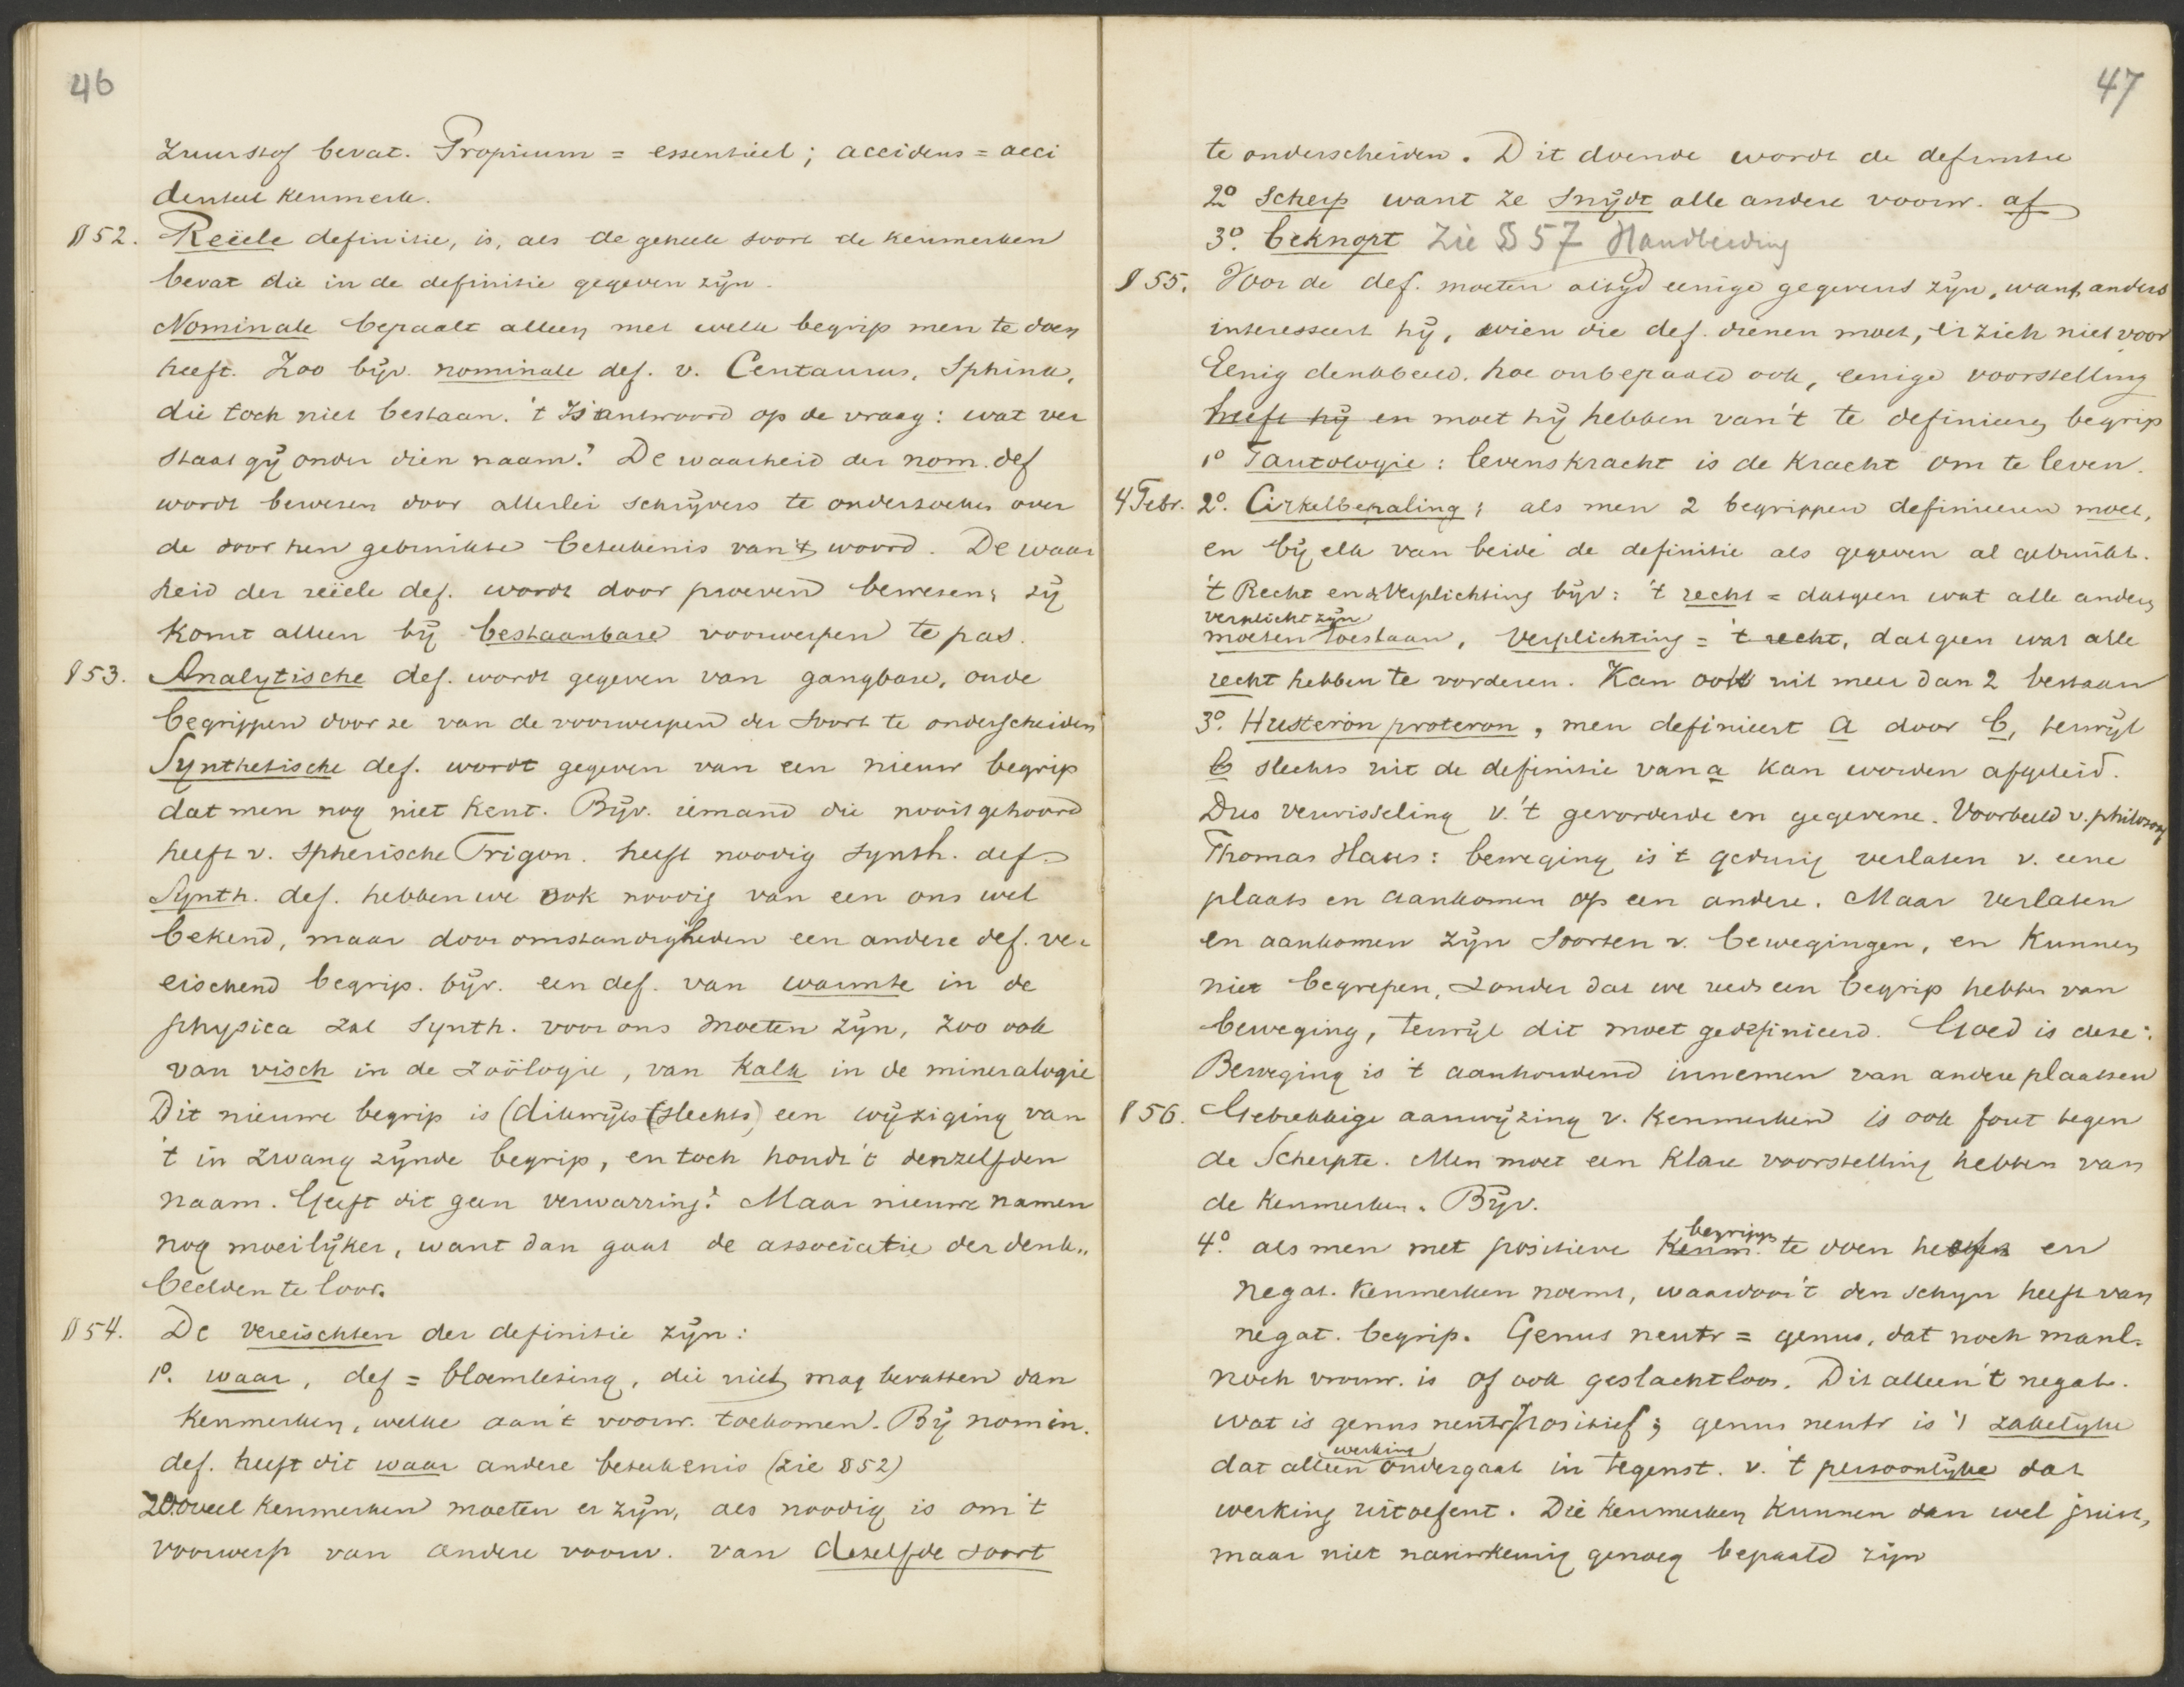 46
zuurstof bevat. Proprium = essentieel; accidens = acci
denteel kenmerk.
§ 52. Reëele definitie, is, als de geheele soort de kenmerken
bevat die in de definitie gegeven zijn.
Nominale bepaalt alleen met welk begrip men te doen
heeft. Zoo bijv. nominale def. v. Centaurus, Sphinx,
die toch niet bestaan. 't Is antwoord op de vraag: wat ver
staat gij onder dien naam? De waarheid der nom. def
wordt bewezen door allerlei schrijvers te onderzoeken over
de door hen gebruikte beteekenis van 't woord. De waar
heid der reëele def. wordt door proeven bewezen; zij
komt alleen bij bestaanbare voorwerpen te pas.
§ 53. Analytische def. wordt gegeven van gangbare, oude
begrippen door ze van de voorwerpen der soort te onderscheiden
Synthetische def. wordt gegeven van een nieuw begrip
dat men nog niet kent. Bijv. iemand die nooit gehoord
heeft v. spherische Trigon. heeft noodig synth. def.
Synth. def. hebben we ook noodig van een ons wel
bekend, maar door omstandigheden een andere def. ver
eischend begrip. bijv. een def. van warmte in de
physica zal synth. voor ons moeten zijn, zoo ook
van visch in de zoölogie, van kalk in de mineralogie
Dit nieuwe begrip is (dikwijls (slechts) een wijziging van
't in zwang zijnde begrip, en toch houdt 't denzelfden
naam. Geeft dit geen verwarring? Maar nieuwe namen
nog moeilijker, want dan gaat de associatie der denk„
beelden te loor.
§ 54. De vereischten der definitie zijn:
1o. waar, def = bloemlezing, die niet mag bevatten dan
kenmerken, welke aan 't voorw. toekomen. Bij nomin.
def. heeft dit waar andere beteekenis (zie § 52)
Zooveel kenmerken moeten er zijn, als noodig is om 't
voorwerp van andere voorw. van dezelfde soort
47
te onderscheiden. Dit doende wordt de definitie
2o scherp want ze snijdt alle andere voorw. af
3o. beknopt Zie § 57 Handleiding
§ 55. Voor de def. moeten altijd eenige gegevens zijn, want anders
interesseert hij, wien die def. dienen moet, er zich niet voor
Eenig denkbeeld, hoe onbepaald ook, eenige voorstelling
heeft hij en moet hij hebben van 't te definieeren begrip
1o Tautologie: levenskracht is de kracht om te leven.
4 Febr. 2o. Cirkelbepaling; als men 2 begrippen definieeren moet,
en bij elk van beide de definitie als gegeven al gebruikt.
't Recht en Verplichting bijv: 't recht = datgeen wat alle anderen
verplicht zijn
moeten toestaan, Verplichting = 't recht, datgeen wat alle
recht hebben te vorderen. Kan ook uit meer dan 2 bestaan
3o. Husteron proteron, men definieert a door b, terwijl
b slechts uit de definitie van a kan worden afgeleid.
Dus verwisseling v. 't gevorderde en gegevene. Voorbeeld v. philosoof
Thomas: beweging is 't gedurig verlaten v. eene
plaats en aankomen op een andere. Maar verlaten
en aankomen zijn soorten v. bewegingen, en kunnen
niet begrepen, zonder dat we reeds een begrip hebben van
beweging, terwijl dit moet gedefinieerd. Goed is deze:
Beweging is 't aanhoudend innemen van andere plaatsen
§ 56. Gebrekkige aanwijzing v. kenmerken is ook fout tegen
de Scherpte. Men moet een klare voorstelling hebben van
de kenmerken. Bijv.
begripp
4o. als men met positieve kenm. te doen heeft en
negat. kenmerken noemt, waardoor 't den schijn heeft van
negat. begrip. Genus neutr = genus, dat noch manl.
noch vrouw. is of ook geslachtloos. Dit alleen 't negat.
wat is genus neutr positief; genus neutr is 't zakelijke
werking
dat alleen ondergaat in tegenst. v. 't persoonlijke dat
werking uitoefent. Die kenmerken kunnen dan wel juist,
maar niet nauwkeurig genoeg bepaald zijn